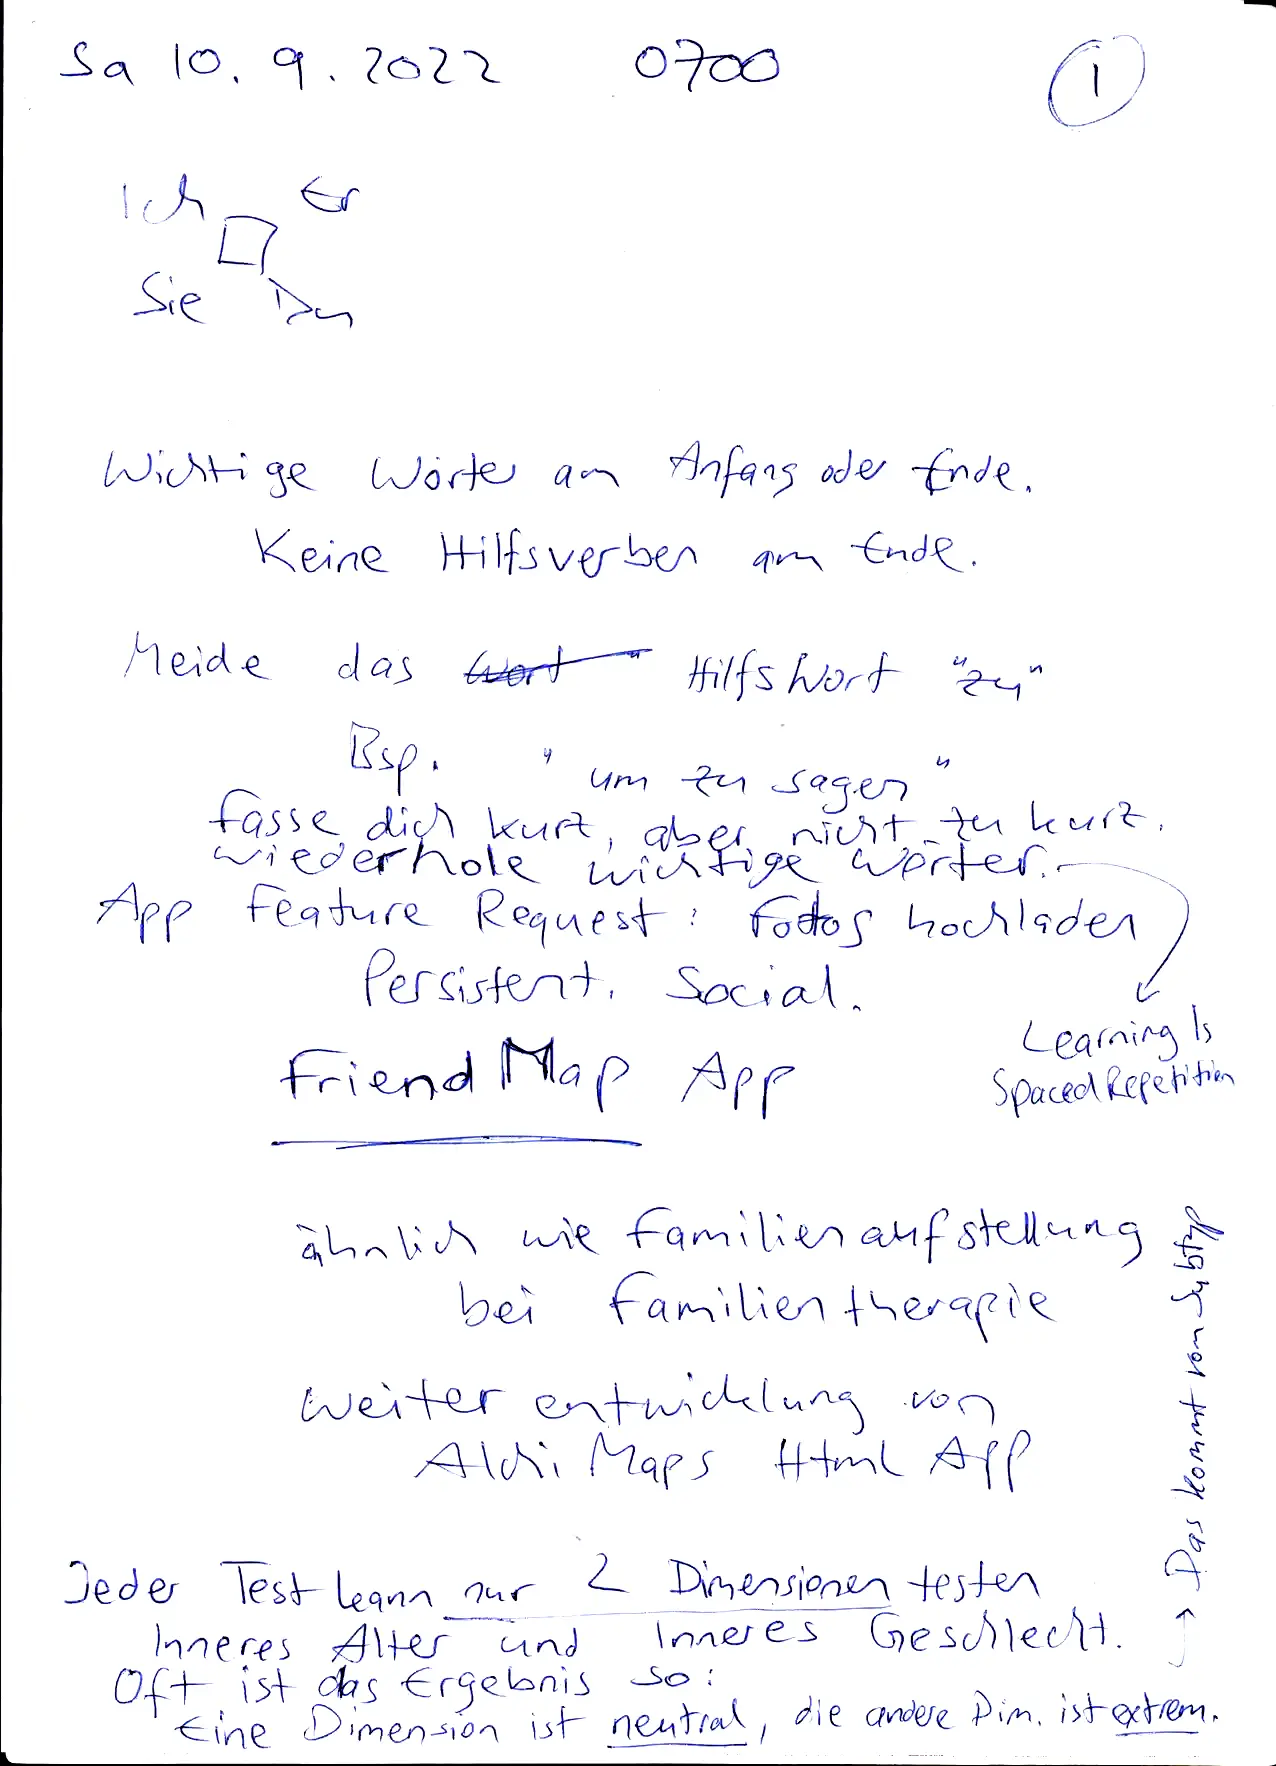 Sa 10.9.2022 0700 1
Ich Er
Sie Du
Wichtige Wörter am Anfang oder Ende.
Keine Hilfsverben am Ende.
Meide das Wort " HilfsWort "zu"
Bsp. "um zu sagen"
Fasse dich kurz, aber nicht zu kurz.
wiederhole wichtige Wörter.
App Feature Request: Fotos hochladen
Persistent. Social.
Learning Is
Spaced Repetition
FriendMap App
ähnlich wie Familienaufstellung
bei Familientherapie
Weiterentwicklung von
Alchi Maps Html App
Jeder Test kann nur 2 Dimensionen testen
Inneres Alter und Inneres Geschlecht.
Oft ist das Ergebnis so:
Eine Dimension ist neutral, die andere Dim. ist extrem.
→ Das kommt von Subtyp